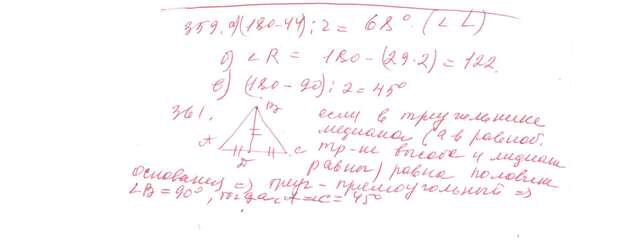 359. а) (180-44):2 = 68°. (∠L)
б) ∠R = 180-(29·2)=122.
в) (180-90):2=45°
361.
B
A
C
D
если в треугольнике
медиана (а в равноб.
тр-ке высота и медиана
равны) равна половине
основания => треуг-прямоугольный =>
∠B=90°, тогда ∠A=∠C=45°